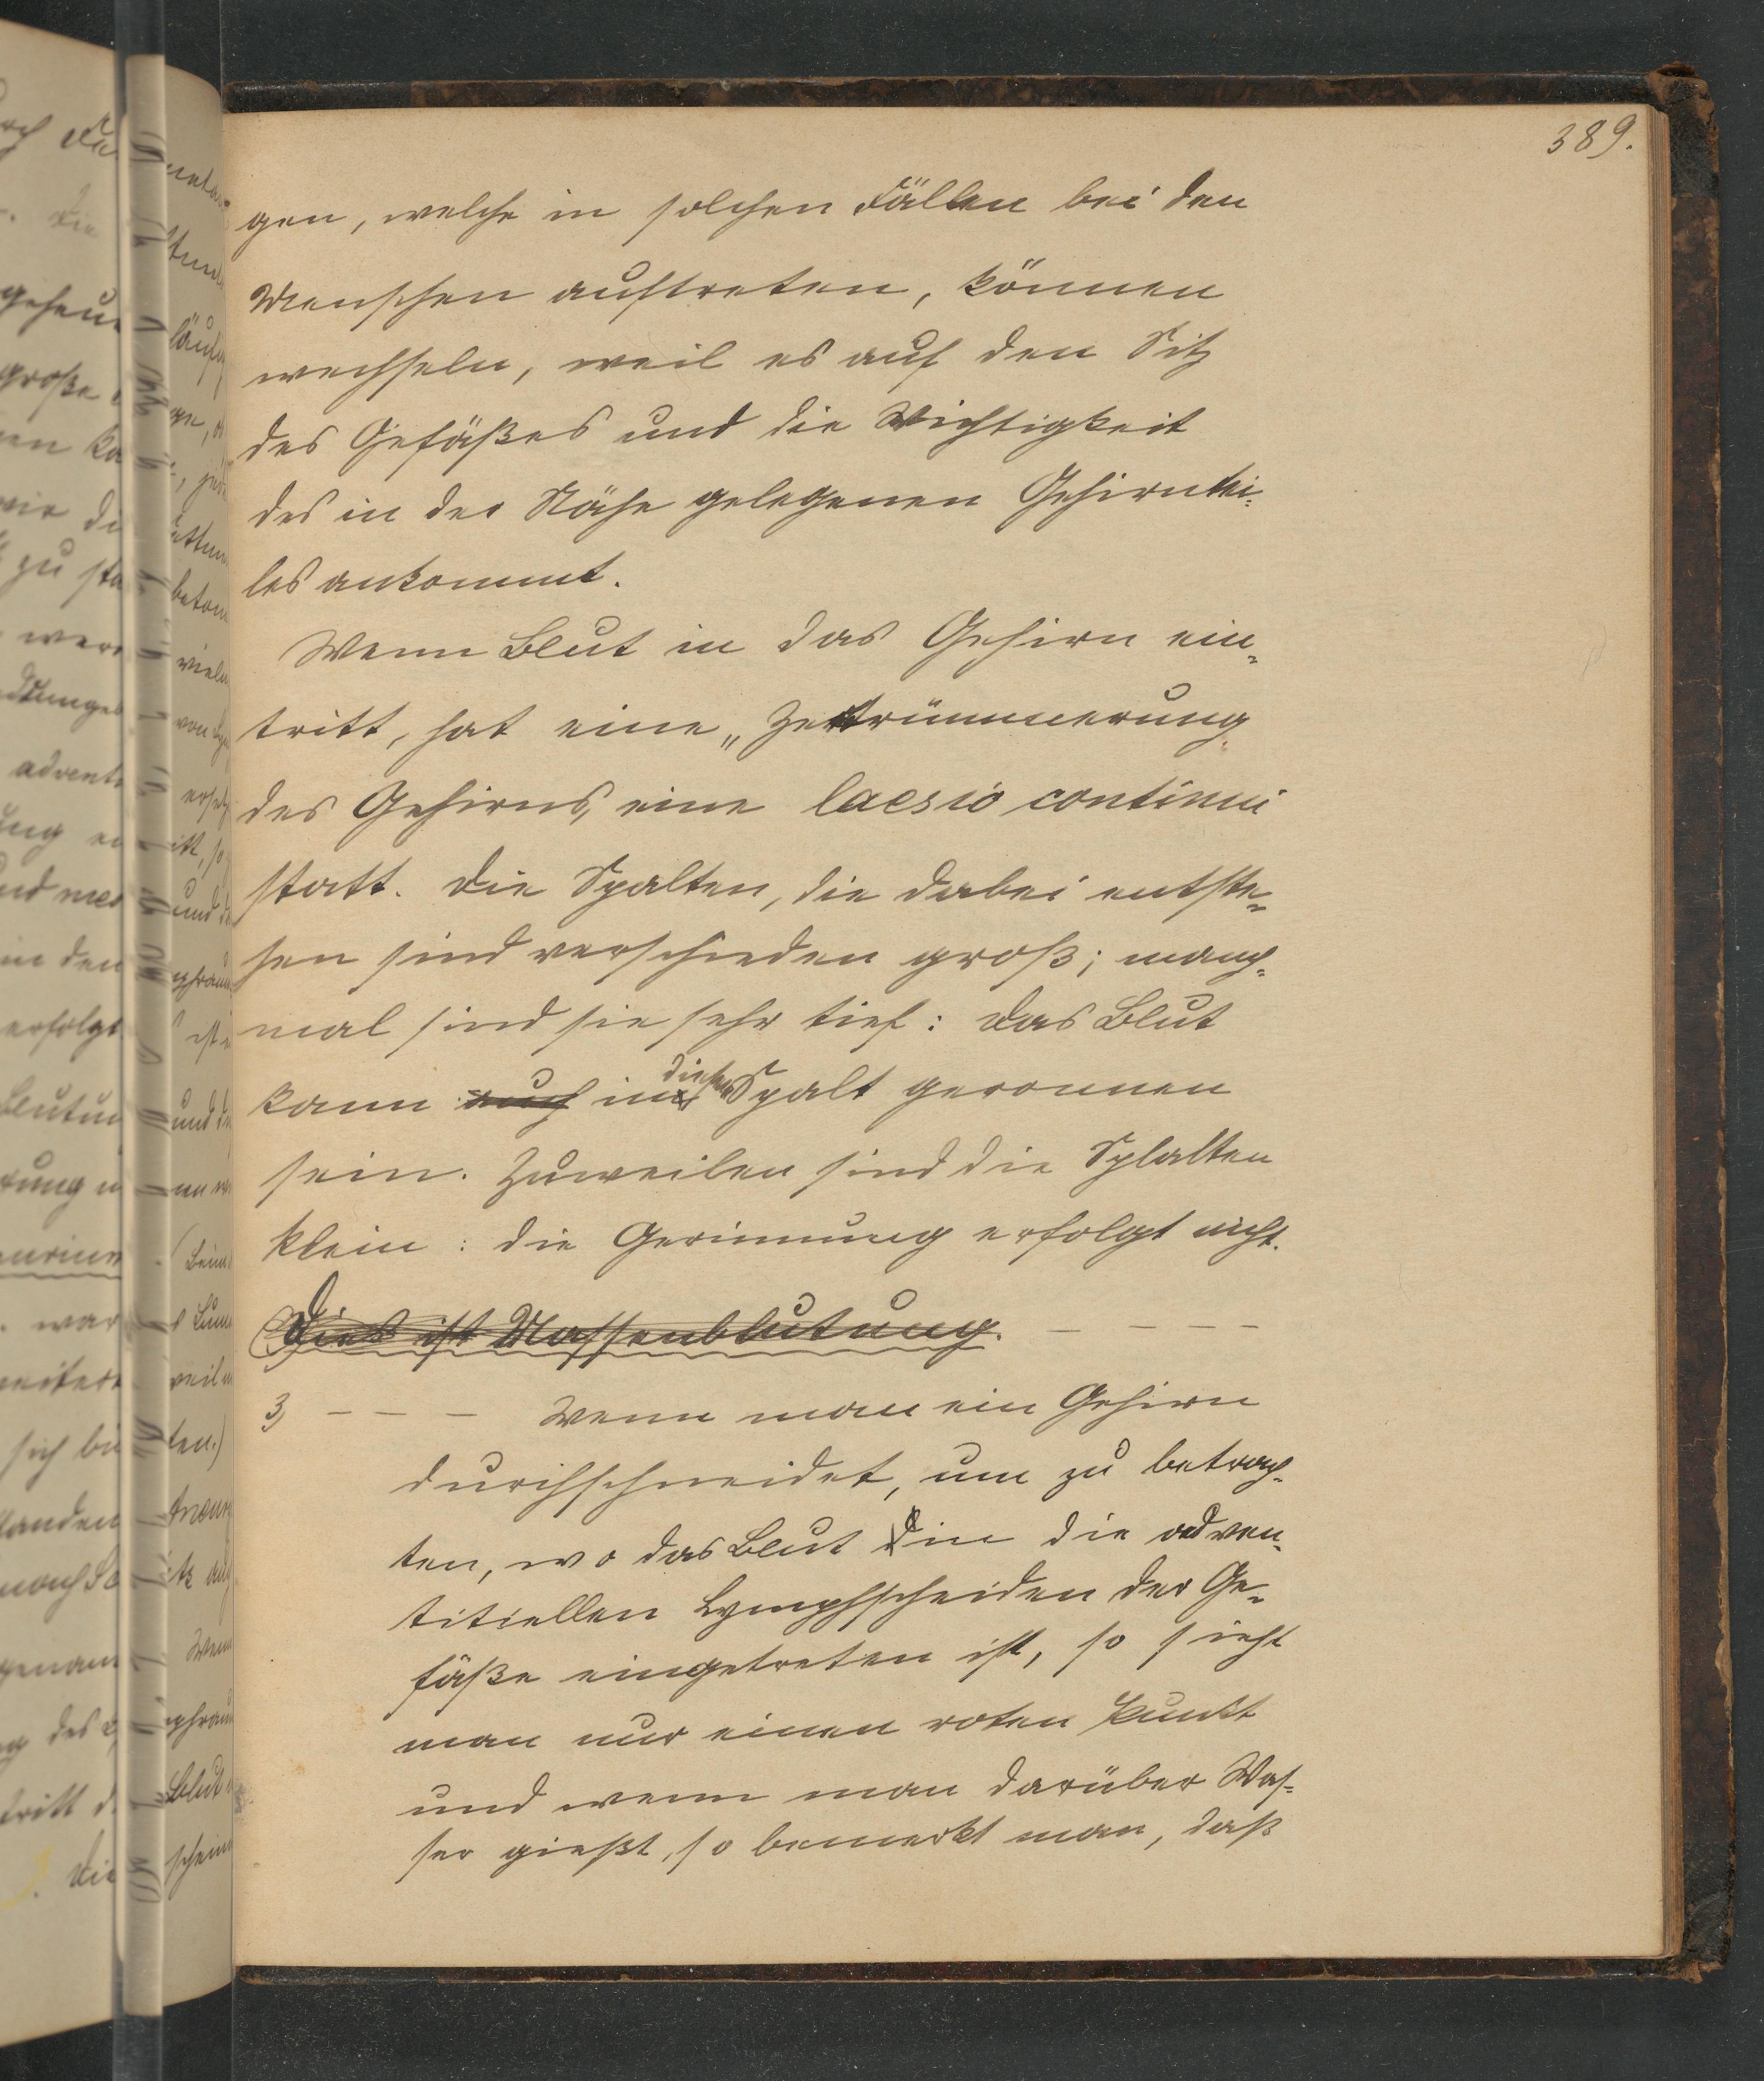 389.
gen, welche in solchen Fällen bei den
Menschen auftreten, können
wechseln, weil es auf den Sitz
des Gefäßes und die Wichtigkeit
des in der Nähe gelegenen Gehirntei-
les ankommt.
Wenn Blut in das Gehirn ein-
tritt, hat eine „Zertrümmerung
des Gehirns, eine laesio continui
statt. Die Spalten, die dabei entste-
hen sind verschieden groß; manch-
mal sind sie sehr tief: das Blut
kann auch in diesem Spalt geronnen
sein. Zuweilen sind die Splalten
klein: die Gerinnung erfolgt nicht.
Dies ist Massenblutung. — — — —
3) — — — Wenn man ein Gehirn
durchschneidet, um zu betrach-
ten, wo das Blut in die adven-
titiellen Lymphscheiden der Ge-
fäße eingetreten ist, so sieht
man nur einen roten Punkt
und wenn man darüber Was-
ser gießt, so bemerkt man, daß